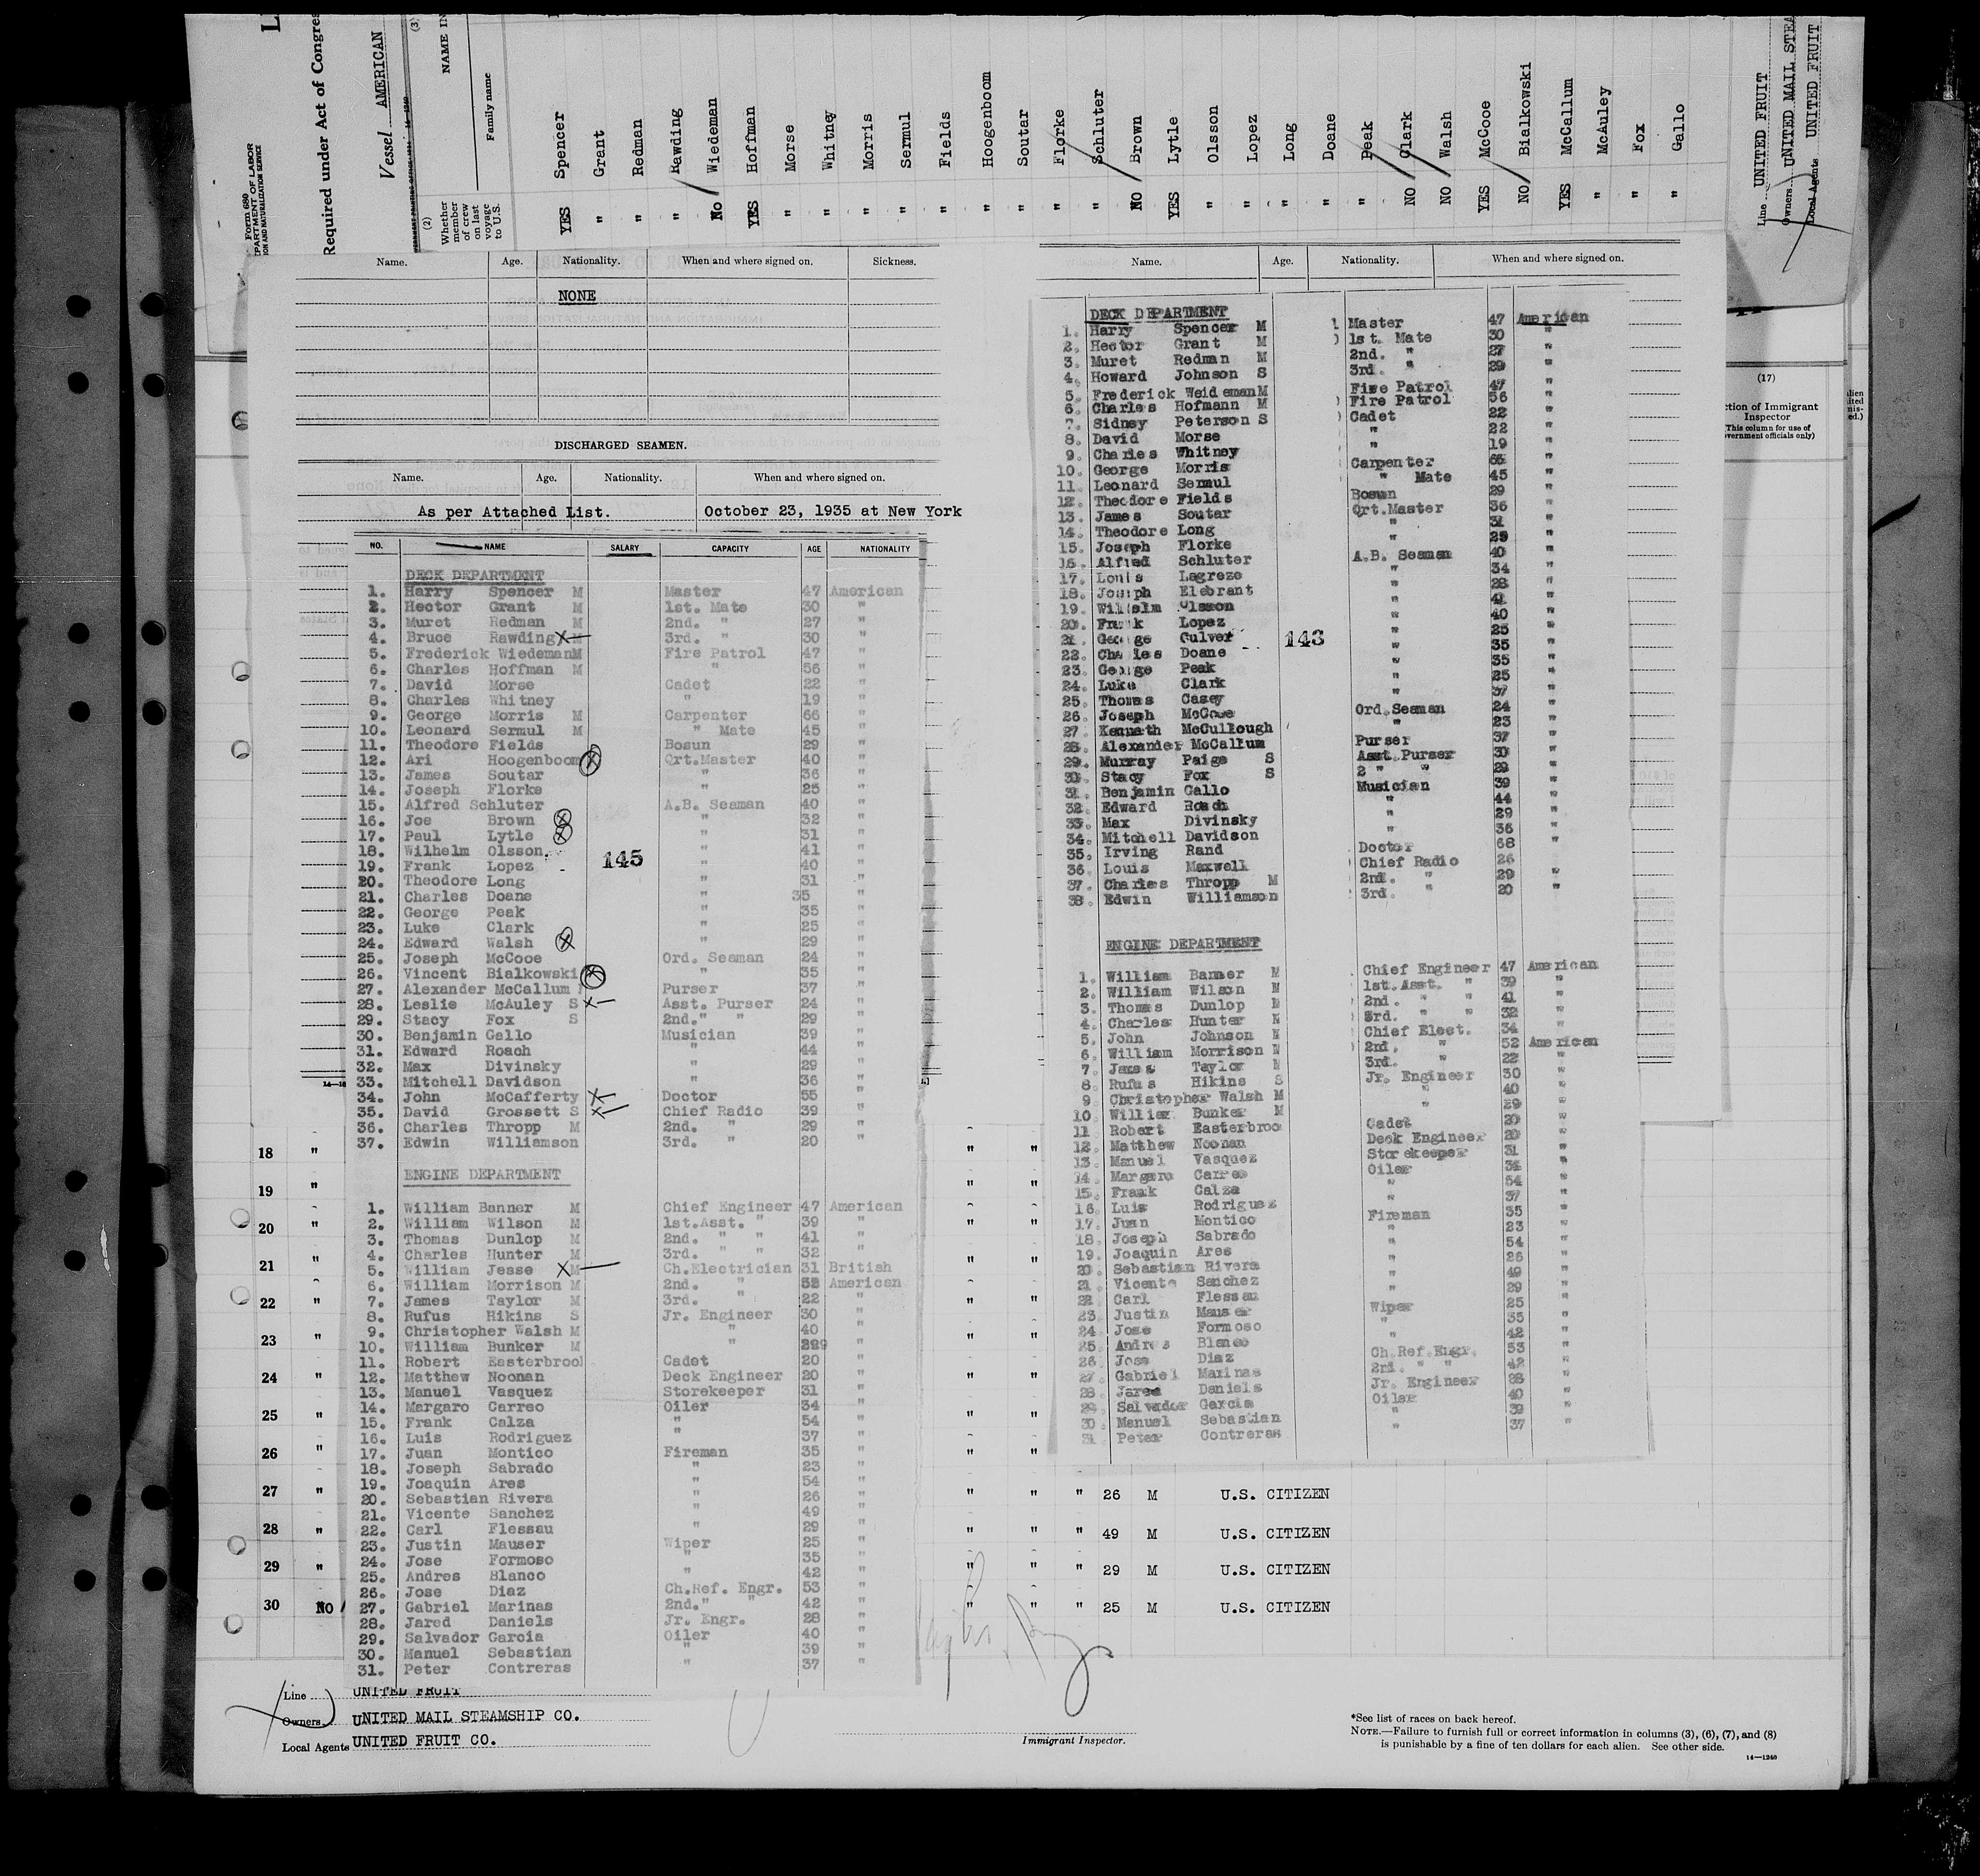 Form 680
DEPARTMENT OF LABOR
Required under Act of Congres
Vessel AMERICAN
(3)
NAME IN
Family name
(2)
Whether
member
of crew
on last
voyage
to U.S.
YES Spencer
" Grant
" Redman
" Rawding
No Wiedeman
YES Hoffman
" Morse
" Whitney
" Morris
" Sermul
" Fields
" Hoogenboom
" Soutar
" Florke
" Schluter
NO Brown
YES Lytle
" Olsson
" Lopez
" Long
" Doane
" Peak
NO Clark
NO Walsh
YES McCooe
NO Bialkowski
YES McCallum
" McAuley
" Fox
" Gallo
Line UNITED FRUIT
Owners UNITED MAIL STEA
Local Agents UNITED FRUIT
Name. Age. Nationality. When and where signed on. Sickness.
NONE
DISCHARGED SEAMEN.
Name. Age. Nationality. When and where signed on.
As per Attached List. October 23, 1935 at New York
NO. NAME SALARY CAPACITY AGE NATIONALITY
DECK DEPARTMENT
1. Harry Spencer M Master 47 American
2. Hector Grant M 1st. Mate 30 "
3. Muret Redman M 2nd. " 27 "
4. Bruce Rawding M 3rd. " 30 "
5. Frederick Wiedeman M Fire Patrol 47 "
6. Charles Hoffman M " 56 "
7. David Morse Cadet 22 "
8. Charles Whitney " 19 "
9. George Morris M Carpenter 66 "
10. Leonard Sermul M " Mate 45 "
11. Theodore Fields Bosun 29 "
12. Ari Hoogenboom Qrt.Master 40 "
13. James Soutar " 36 "
14. Joseph Florke " 25 "
15. Alfred Schluter A.B. Seaman 40 "
16. Joe Brown " 32 "
17. Paul Lytle " 31 "
18. Wilhelm Olsson " 41 "
145
19. Frank Lopez " 40 "
20. Theodore Long " 31 "
21. Charles Doane " 35 "
22. George Peak " 35 "
23. Luke Clark " 25 "
24. Edward Walsh " 29 "
25. Joseph McCooe Ord. Seaman 24 "
26. Vincent Bialkowski " 35 "
27. Alexander McCallum Purser 37 "
28. Leslie McAuley S Asst. Purser 24 "
29. Stacy Fox S 2nd." " 29 "
30. Benjamin Gallo Musician 39 "
31. Edward Roach " 44 "
32. Max Divinsky " 29 "
33. Mitchell Davidson " 36 "
34. John McCafferty Doctor 55 "
35. David Grossett S Chief Radio 39 "
36. Charles Thropp M 2nd. " 29 "
37. Edwin Williamson 3rd. " 20 "
ENGINE DEPARTMENT
1. William Banner M Chief Engineer 47 American
2. William Wilson M 1st.Asst. " 39 "
3. Thomas Dunlop M 2nd. " " 41 "
4. Charles Hunter M 3rd. " " 32 "
5. William Jesse M Ch.Electrician 31 British
6. William Morrison M 2nd. " 52 American
7. James Taylor M 3rd. " 22 "
8. Rufus Hikins S Jr. Engineer 30 "
9. Christopher Walsh M " 40 "
10. William Bunker M " 229 "
11. Robert Easterbrool Cadet 20 "
12. Matthew Noonan Deck Engineer 20 "
13. Manuel Vasquez Storekeeper 31 "
14. Margaro Carreo Oiler 34 "
15. Frank Calza " 54 "
16. Luis Rodriguez " 37 "
17. Juan Montico Fireman 35 "
18. Joseph Sabrado " 23 "
19. Joaquin Ares " 54 "
20. Sebastian Rivera " 26 "
21. Vicente Sanchez " 49 "
22. Carl Flessau " 29 "
23. Justin Mauser Wiper 25 "
24. Jose Formoso " 35 "
25. Andres Blanco " 42 "
26. Jose Diaz Ch.Ref. Engr. 53 "
27. Gabriel Marinas 2nd." " 42 "
28. Jared Daniels Jr. Engr. 28 "
29. Salvador Garcia Oiler 40 "
30. Manuel Sebastian " 39 "
31. Peter Contreras " 37 "
Name. Age. Nationality. When and where signed on.
DECK DEPARTMENT
1. Harry Spencer M Master 47 American
2. Hector Grant M 1st. Mate 30 "
3. Muret Redman M 2nd. " 27 "
4. Howard Johnson S 3rd. " 29 "
5. Frederick Weideman M Fire Patrol 47 "
6. Charles Hofmann M Fire Patrol 56 "
7. Sidney Peterson S Cadet 22 "
8. David Morse " 22 "
9. Charles Whitney " 19 "
10. George Morris Carpenter 66 "
11. Leonard Sermul " Mate 45 "
12. Theodore Fields Bosun 29 "
13. James Soutar Qrt.Master 36 "
14. Theodore Long " 31 "
15. Joseph Florke " 25 "
16. Alfred Schluter A.B. Seaman 40 "
17. Louis Lagreze " 34 "
18. Joseph Elebrant " 28 "
19. Wilhelm Olsson " 41 "
20. Frank Lopez " 40 "
21. George Culver " 25 "
143
22. Charles Doane " 35 "
23. George Peak " 35 "
24. Luke Clark " 25 "
25. Thomas Casey " 37 "
26. Joseph McCooe Ord.Seaman 24 "
27. Kenneth McCullough " 23 "
28. Alexander McCallum Purser 37 "
29. Murray Paige S Asst.Purser 30 "
30. Stacy Fox S 2 " " 29 "
31. Benjamin Gallo Musician 39 "
32. Edward Roach " 44 "
33. Max Divinsky " 29 "
34. Mitchell Davidson " 36 "
35. Irving Rand Doctor 68 "
36. Louis Maxwell Chief Radio 26 "
37. Charles Thropp M 2nd. " 29 "
38. Edwin Williamson 3rd. " 20 "
ENGINE DEPARTMENT
1. William Banner M Chief Engineer 47 American
2. William Wilson M 1st.Asst. " 39 "
3. Thomas Dunlop M 2nd. " " 41 "
4. Charles Hunter M 3rd. " " 32 "
5. John Johnson M Chief Elect. 34 "
6. William Morrison M 2nd. " 52 American
7. James Taylor M 3rd. " 22 "
8. Rufus Hikins S Jr. Engineer 30 "
9. Christopher Walsh M " 40 "
10. William Bunker M " 29 "
11. Robert Easterbroo Cadet 20 "
12. Matthew Noonan Deck Engineer 20 "
13. Manuel Vasquez Storekeeper 31 "
14. Margaro Carreo Oiler 34 "
15. Frank Calza " 54 "
16. Luis Rodriguez " 37 "
17. Juan Montico Fireman 35 "
18. Joseph Sabrado " 23 "
19. Joaquin Ares " 54 "
20. Sebastian Rivera " 26 "
21. Vicente Sanchez " 49 "
22. Carl Flessau " 29 "
23. Justin Mauser Wiper 25 "
24. Jose Formoso " 35 "
25. Andres Blanco " 42 "
26. Jose Diaz Ch.Ref.Engr. 53 "
27. Gabriel Marinas 2nd. " " 42 "
28. Jared Daniels Jr. Engineer 28 "
29. Salvador Garcia Oiler 40 "
30. Manuel Sebastian " 39 "
31 Peter Contreras " 37 "
(17)
ction of Immigrant
Inspector
(This column for use of
Government officials only)
18 "
19 "
20 "
21 "
22 "
23 "
24 "
25 "
26 "
27 " " " " 26 M U.S. CITIZEN
28 " " " " 49 M U.S. CITIZEN
29 " " " " 29 M U.S. CITIZEN
30 NO " " " 25 M U.S. CITIZEN
Line UNITED FRUIT
Owners UNITED MAIL STEAMSHIP CO.
Local Agents UNITED FRUIT CO.
Immigrant Inspector.
*See list of races on back hereof.
NOTE.—Failure to furnish full or correct information in columns (3), (6), (7), and (8)
is punishable by a fine of ten dollars for each alien. See other side.
14—1240